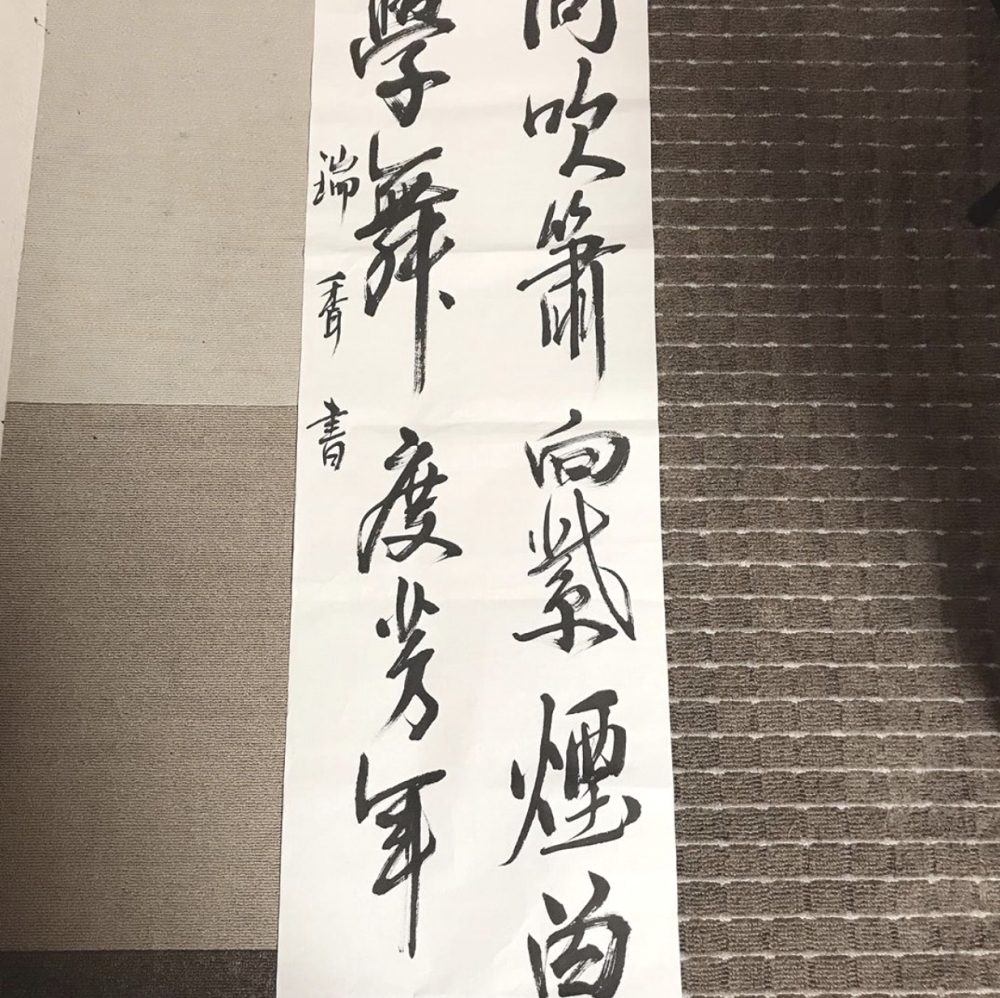 問吹簫向紫煙曾
學舞度芳年
瑞香書